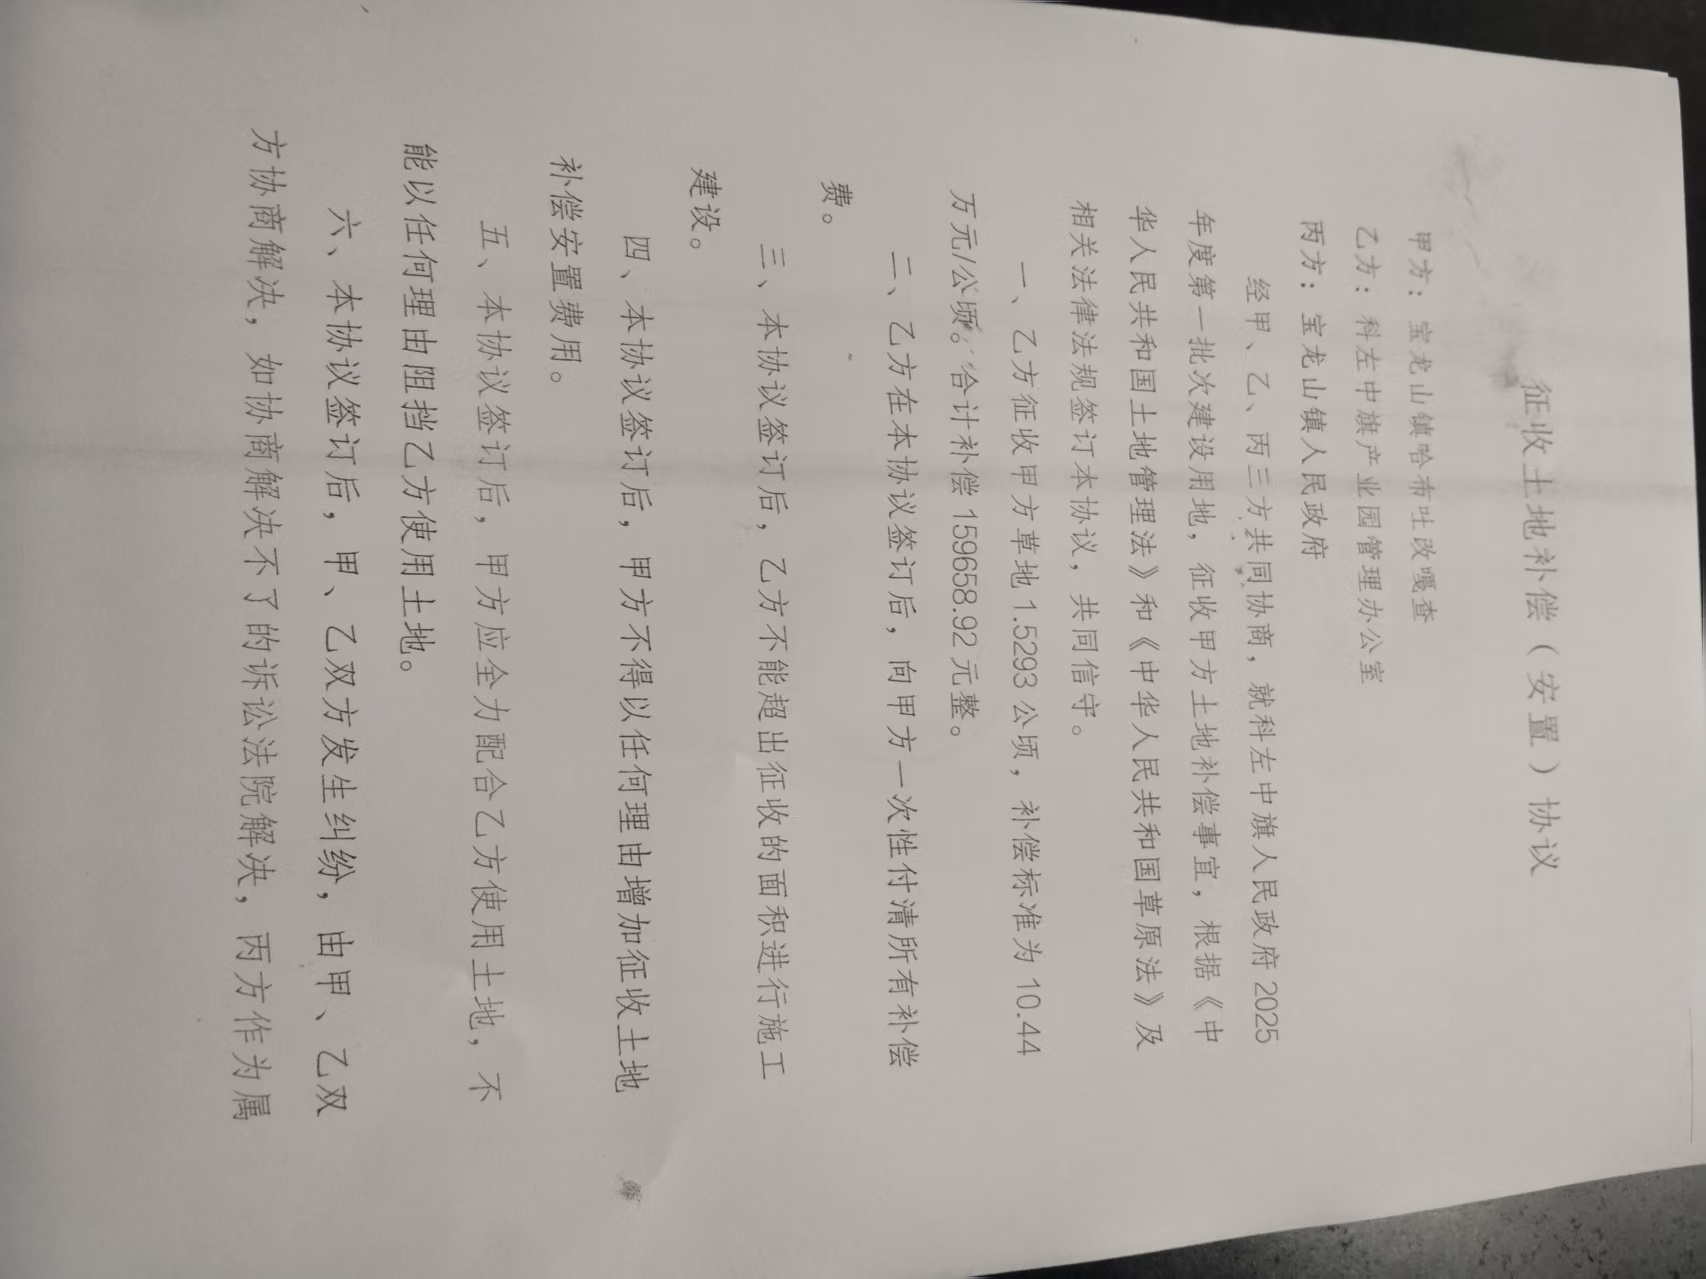 征收土地补偿（安置）协议
甲方：宝龙山镇哈布吐改嘎查
乙方：科左中旗产业园管理办公室
丙方：宝龙山镇人民政府
经甲、乙、丙三方共同协商，就科左中旗人民政府 2025
年度第一批次建设用地，征收甲方土地补偿事宜，根据《中
华人民共和国土地管理法》和《中华人民共和国草原法》及
相关法律法规签订本协议，共同信守。
一、乙方征收甲方草地 1.5293 公顷，补偿标准为 10.44
万元/公顷。合计补偿 159658.92 元整。
二、乙方在本协议签订后，向甲方一次性付清所有补偿
费。
三、本协议签订后，乙方不能超出征收的面积进行施工
建设。
四、本协议签订后，甲方不得以任何理由增加征收土地
补偿安置费用。
五、本协议签订后，甲方应全力配合乙方使用土地，不
能以任何理由阻挡乙方使用土地。
六、本协议签订后，甲、乙双方发生纠纷，由甲、乙双
方协商解决，如协商解决不了的诉讼法院解决，丙方作为属